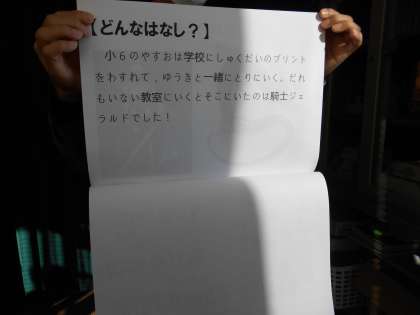 【どんなはなし？】
小６のやすおは学校にしゅくだいのプリント
をわすれて，ゆうきと一緒にとりにいく。だれ
もいない教室にいくとそこにいたのは騎士ジェ
ラルドでした！